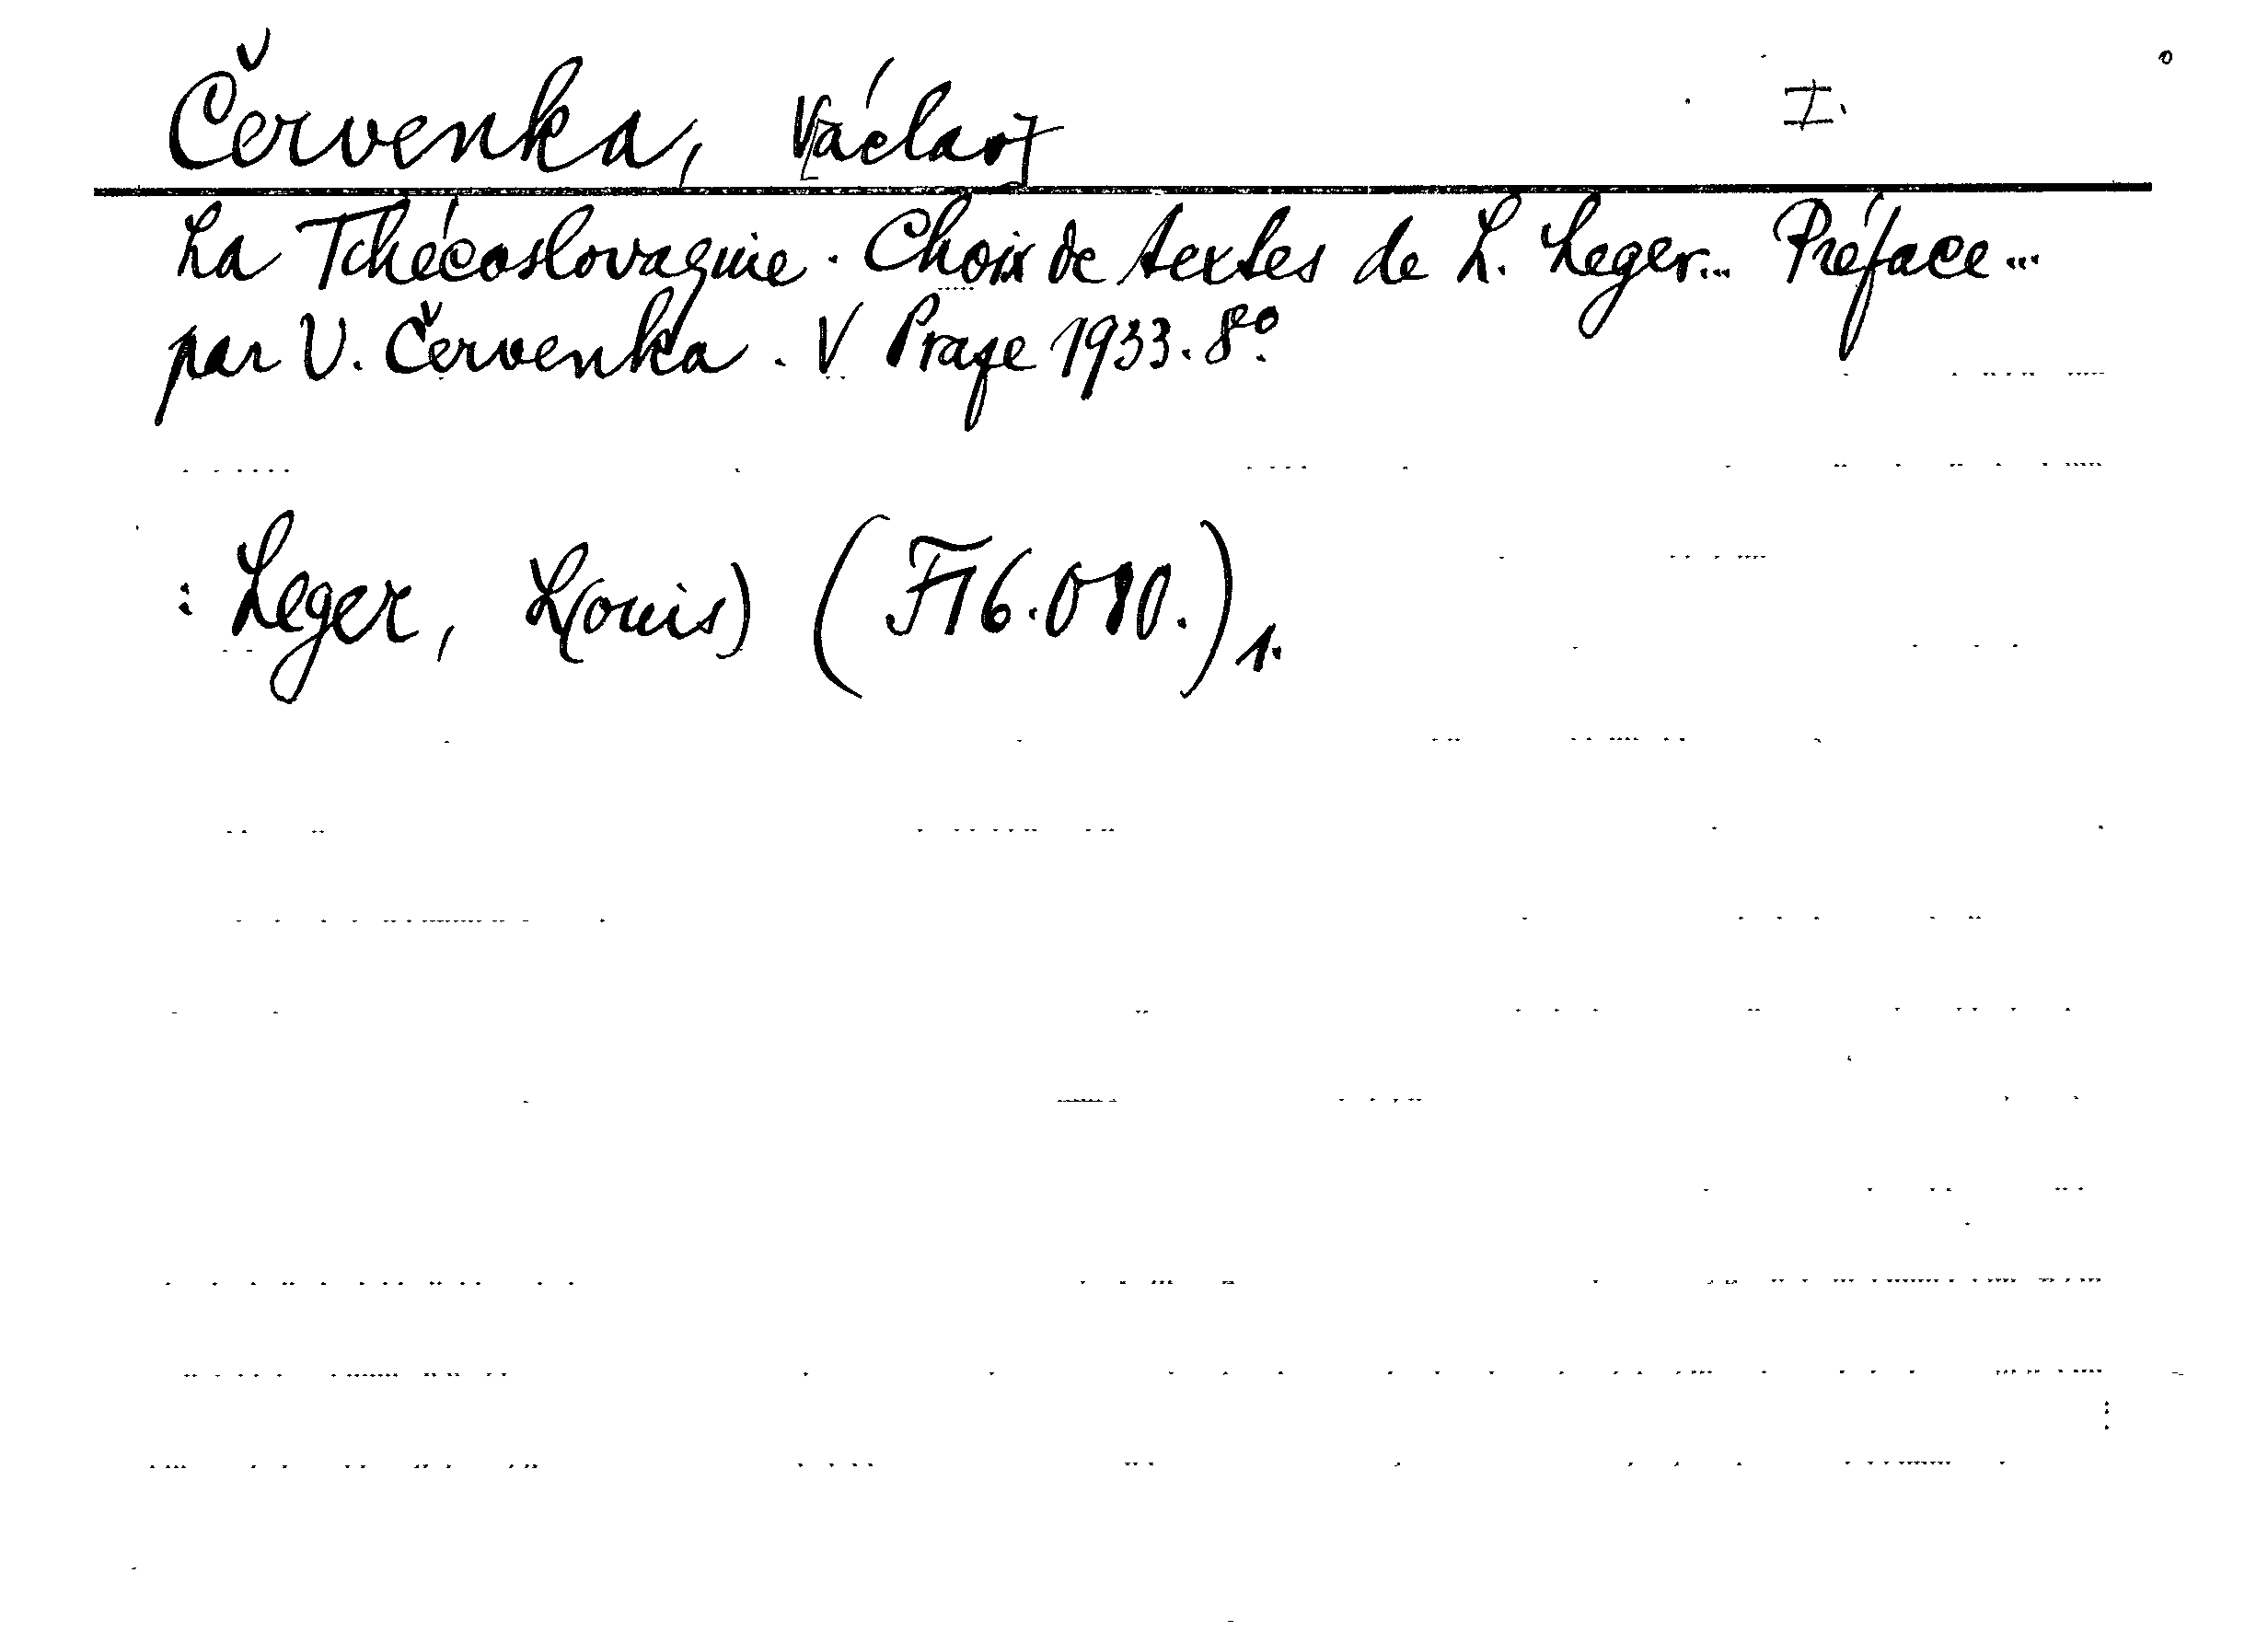 Červenka, V[áclav] I.
La Tchécoslovaquie. Choix de textes de L. Leger... Préface...
par V. Červenka. V Praze 1933. 8°.
: Leger, L(ouis) (F 16.080.) 1.